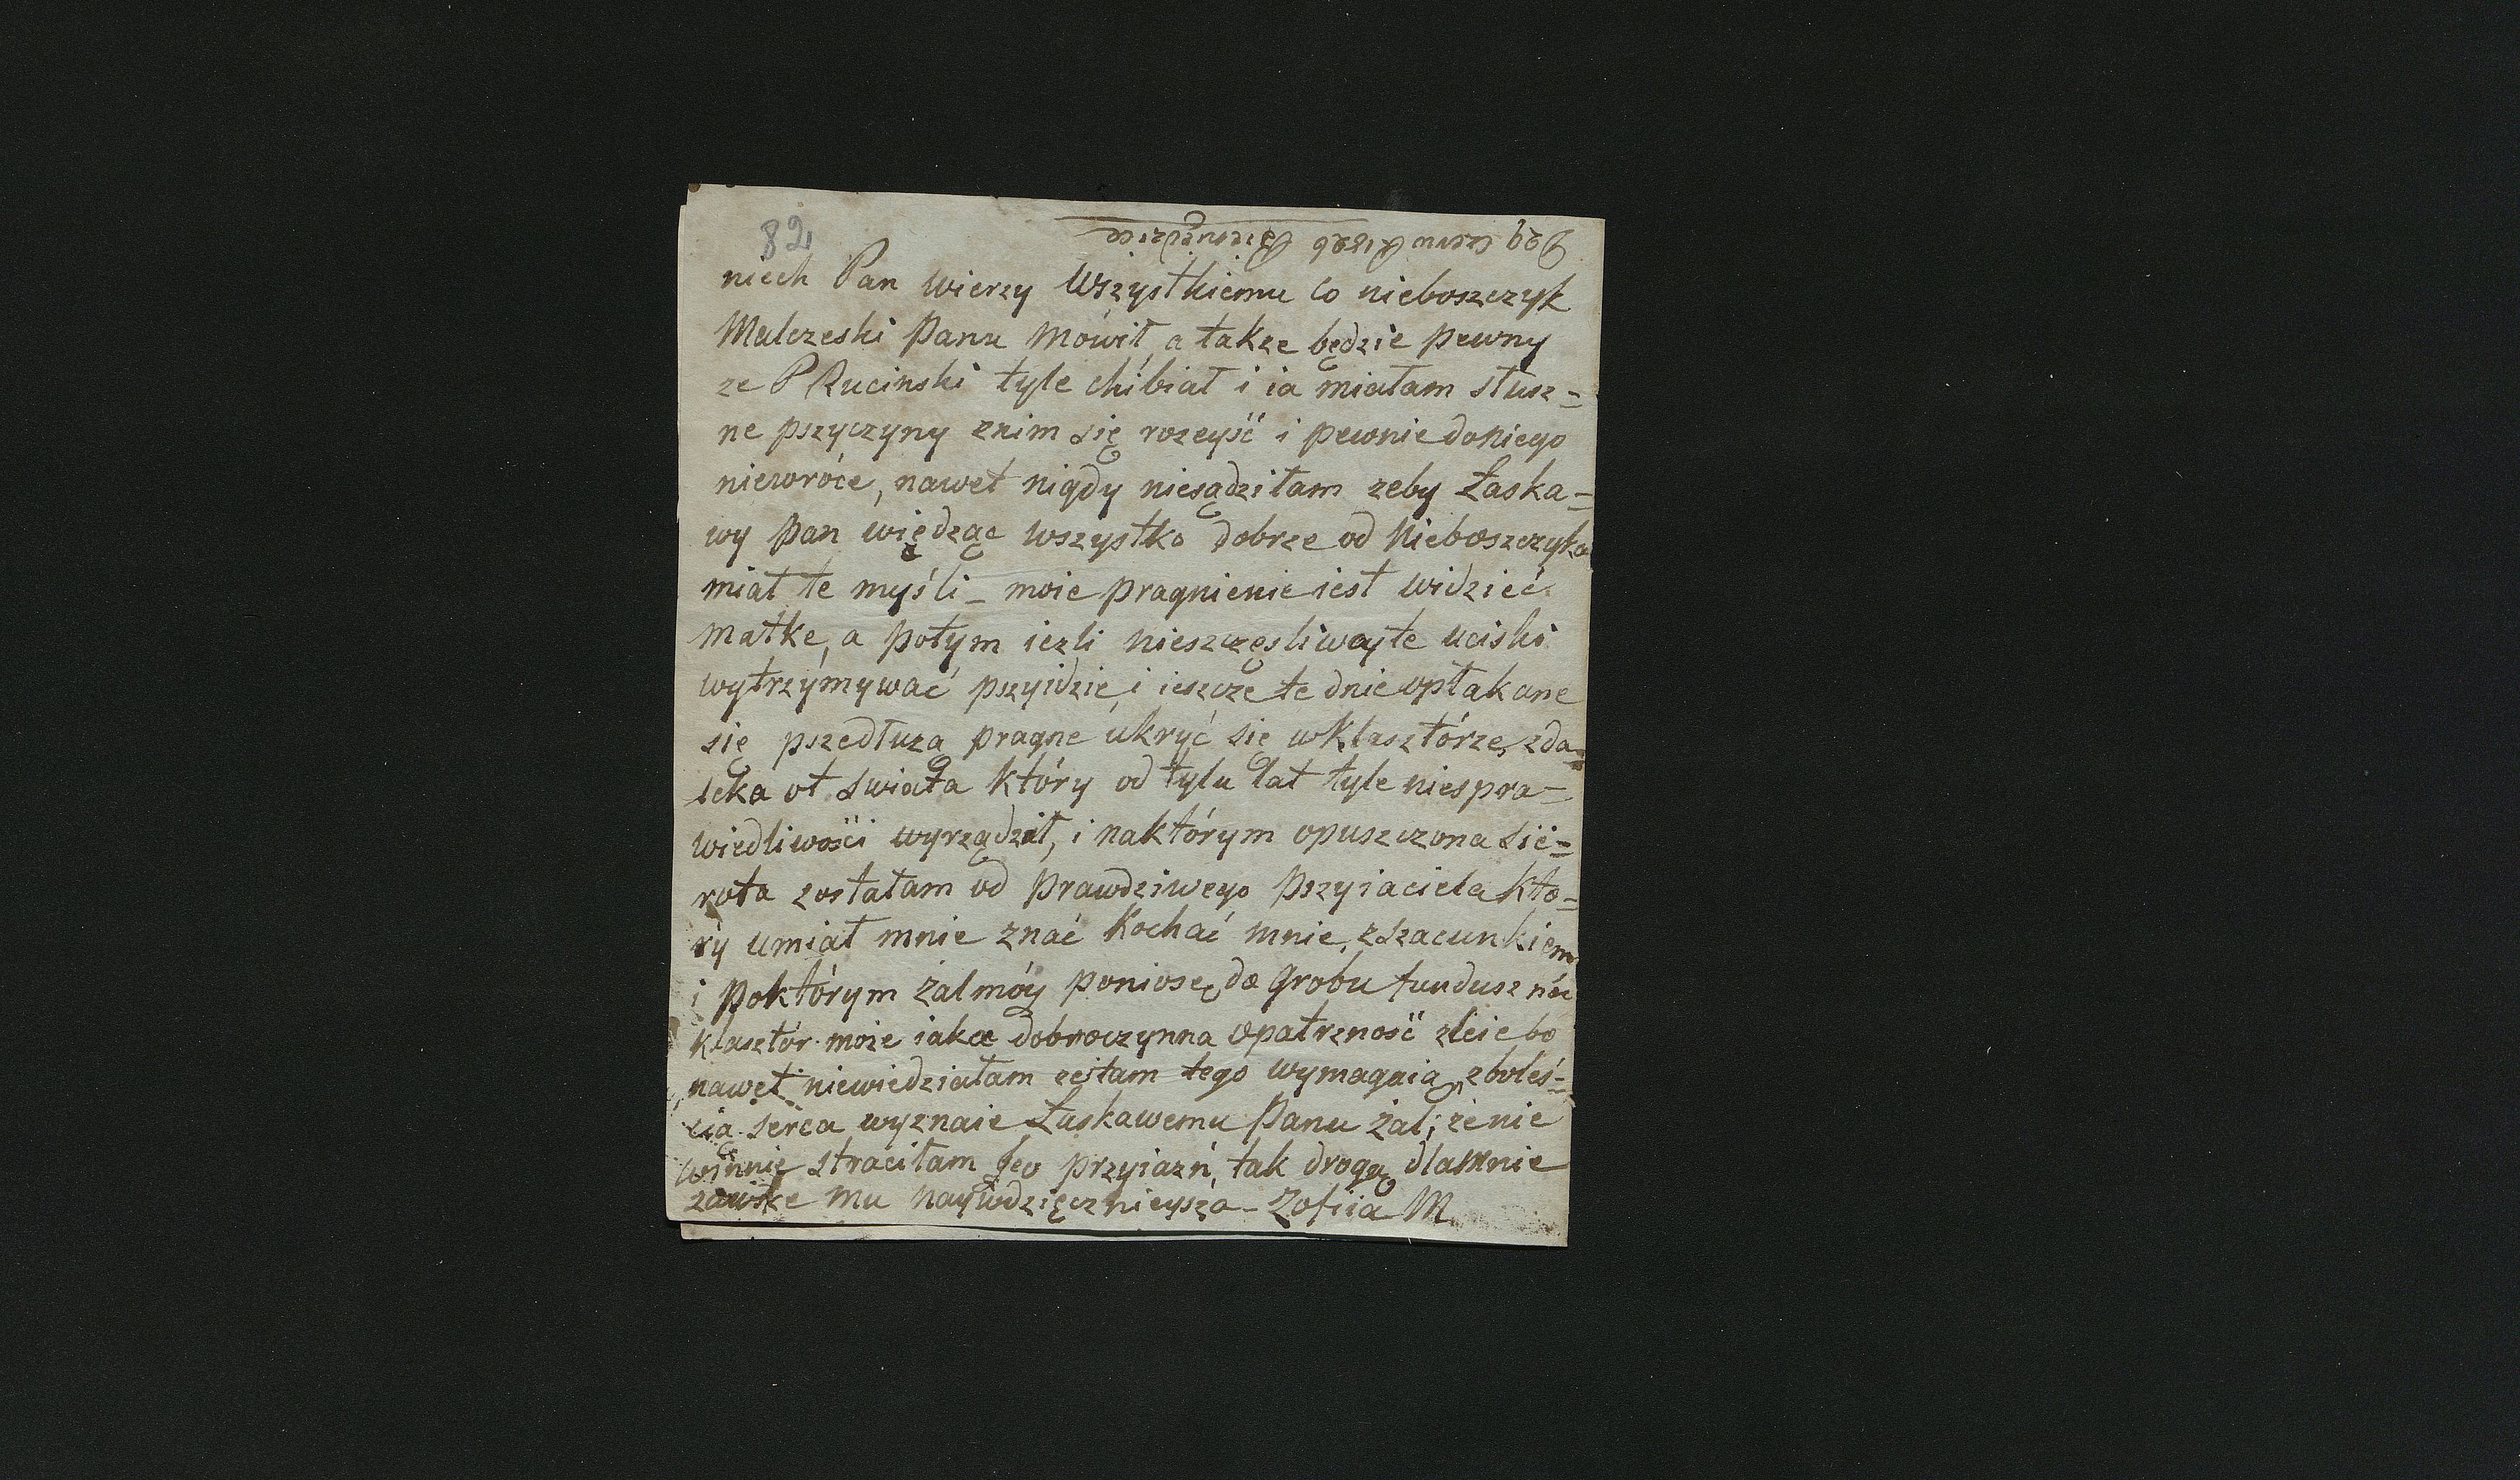 82
D 29 czerw R 1826
niech Pan wierzy wszystkiemu co nieboszczyk
Malczeski Panu mówił, a także będzie pewny
ze P Ruciński tyle chibiał i ia miałam słusz=
ne pszyczyny znim się rozeyść i pewnie doniego
niewróce, nawet nigdy niesądziłam zeby Łaska=
wy Pan wiedząc wszystko dobrze od Nieboszczyka
miał te myśli _ moie pragnienie iest widzieć
matke, a potym iezli nieszczęsliwey te uciski
wytrzymywać pszyidzie, i ieszcze te dnie opłakane
się pszedłuzą pragne ukryć się wklasztórze, zda=
leka ot swiata który od tylu lat tyle niespra=
wiedliwości wyrządził, i naktórym opuszczona sie=
rota zostałam od prawdziwego pszyiaciela któ=
ry umiał mnie znać kochać mnie, zszacunkiem
i poktórym żalmóy poniosę do grobu fundusz na
klasztór moze iaka dobroczynna opatrzność zleie bo
nawet niewiedziałam zeitam tego wymagaią, zboleś=
cią serca wyznaie Łaskawemu Panu żal, żenie
winnie straciłam Jeo przyiazń, tak drogą dlamnie
zawsze mu naywdzięcznieysza _ Zofiia M